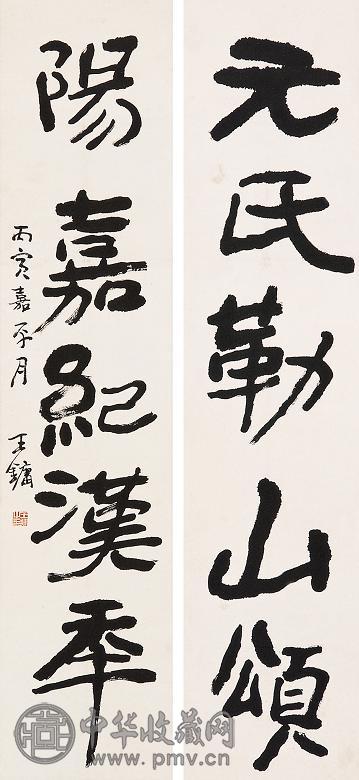 元氏勒山頌
陽嘉紀漢年
丙寅嘉平月 王鏞
中华收藏网
www.pmv.cn